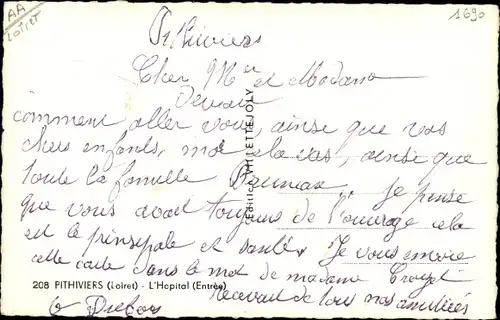 AA
Loiret
1690
Pithiviers
Cher Mr et Madame
Devaux
comment aller vous, ainse que vos
chers enfants, moi ela vas, ainse que
toute la famille Bruneau. Je pense
que vous avait toujours de l'ouvrage cela
est le principale et santé. Je vous envoie
cette carte dans le mot de madame
recevait de tous nos amitiés
208 PITHIVIERS (Loiret) - L'Hopital (Entrée)
Edition VILLETTE JOLY